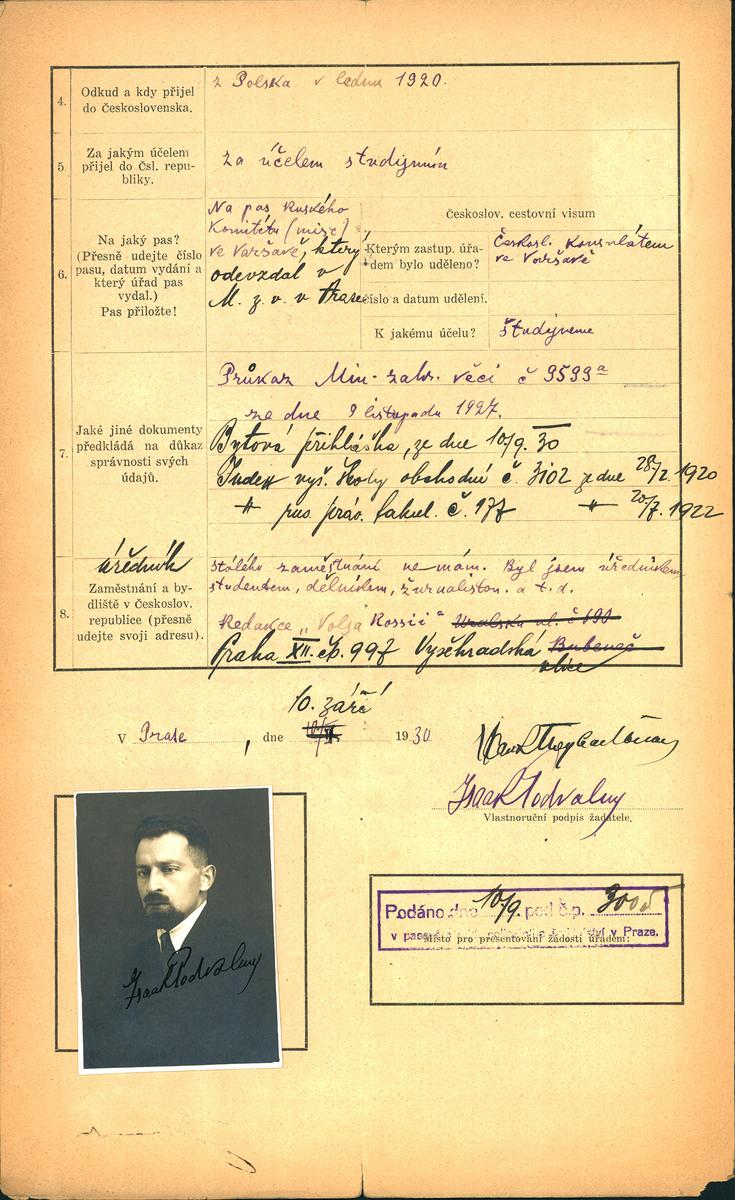 4. Odkud a kdy přijel
do Československa.
z Polska v lednu 1920.
5. Za jakým účelem
přijel do Čsl. repu-
bliky.
za účelem studijním
6. Na jaký pas?
(Přesně udejte číslo
pasu, datum vydání a
který úřad pas
vydal.)
Pas přiložte!
Na pas Ruského
Komitétu (mise)
ve Varšavě, který
odevzdal v
M. z. v. v Praze
Českoslov. cestovní visum
Kterým zastup. úřa-
dem bylo uděleno?
Českosl. Konsulátem
ve Varšavě
číslo a datum udělení.
K jakému účelu?
7. Jaké jiné dokumenty
předkládá na důkaz
správnosti svých
údajů.
Průkaz Min. zahr. věcí č 9599a
ze dne 9 listopadu 1927.
Bytová přihláška, ze dne 10/9. 30
Index vyš. školy obchodní č. 3102 ze dne 28/2. 1920
" rus. práv. fakul. č. 177 " 20/7. 1922
úředník
8. Zaměstnání a by-
dliště v Českoslov.
republice (přesně
udejte svoji adresu).
stálého zaměstnání nemám. Byl jsem úředníkem,
studentem, dělníkem, žurnalistou. a t. d.
Redakce „Volja Rossii"
Praha XII. čp. 997 Vyšehradská Bubeneč
ulice
10. září
V Praze, dne 1930
Isaak Podvalny
Vlastnoruční podpis žadatele.
Isaak Podvalny
Podáno dne 10/9. pod č.p.
v Praze.
Místo pro presentování žádosti úřadem: